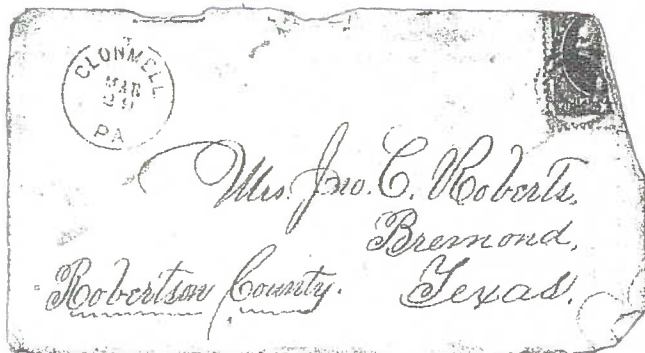 CLONMELL
MAR
29
PA
Mrs. Jno. C. Roberts,
Bremond,
Robertson County. Texas.